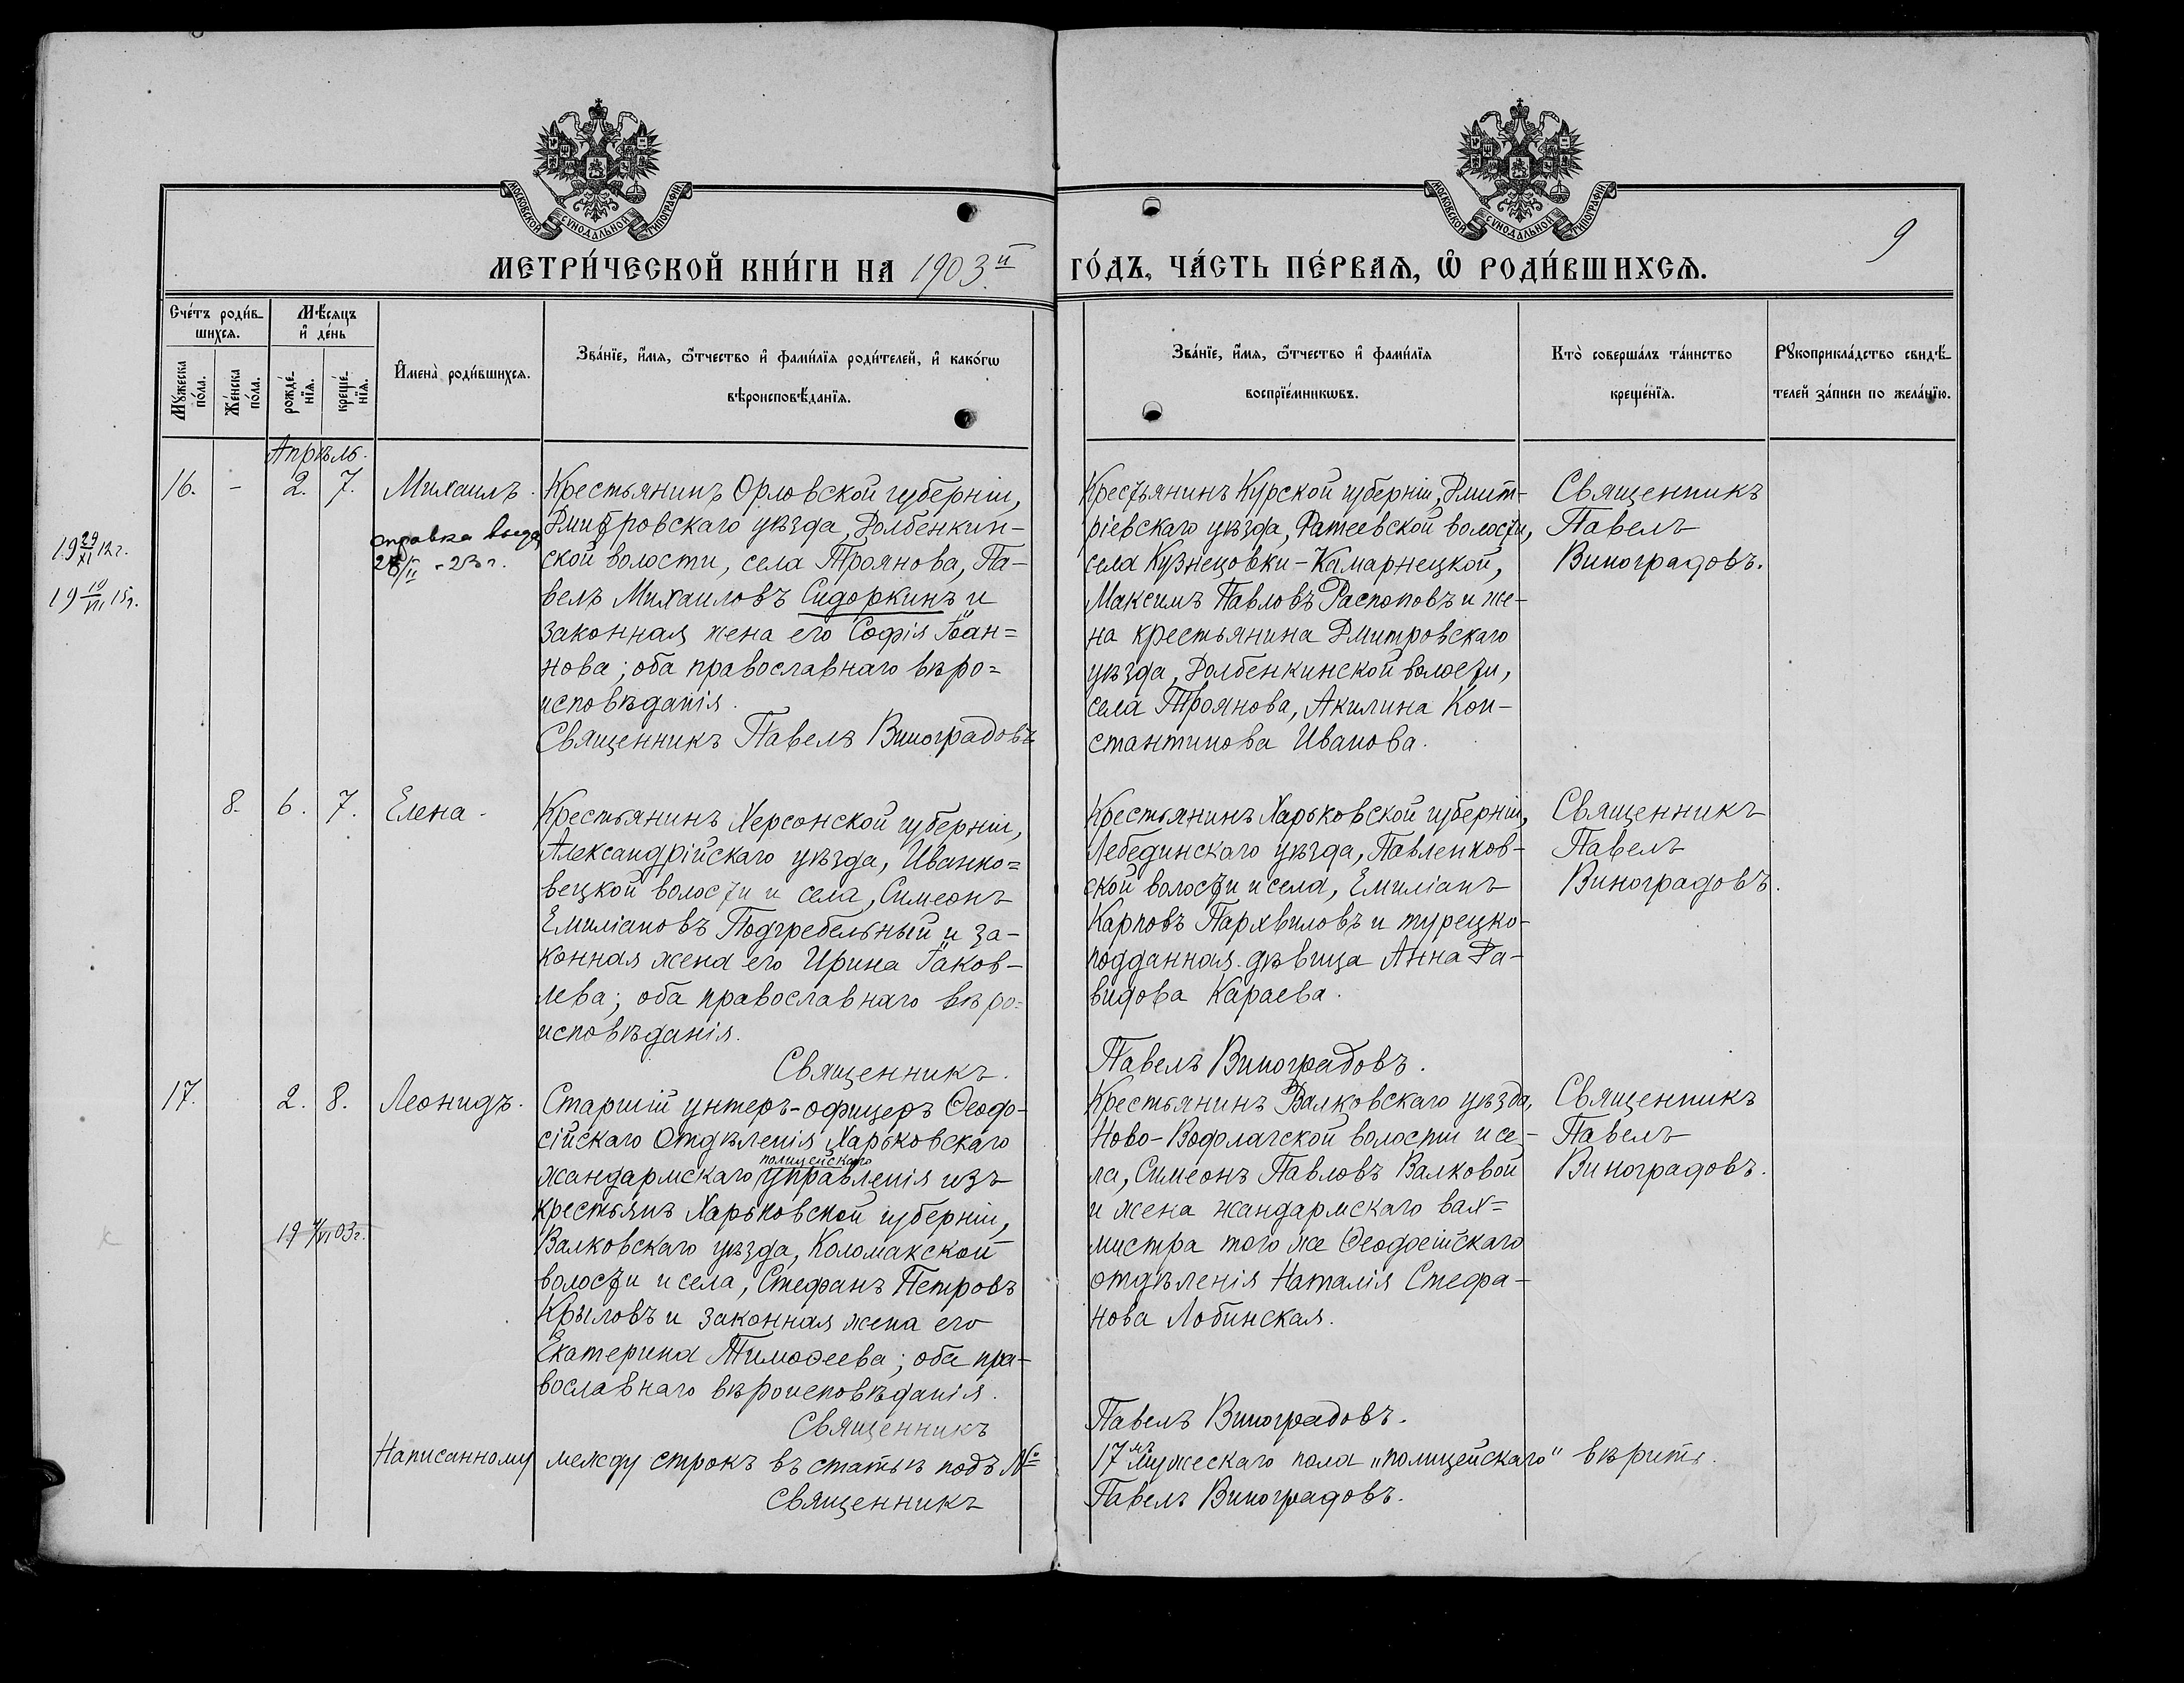 МОСКОВСКОЙ СѴНОДАЛЬНОЙ ТИПОГРАФІИ
МОСКОВСКОЙ СѴНОДАЛЬНОЙ ТИПОГРАФІИ
9
МЕТРИ́ЧЕСКОЙ КНИ́ГИ НА 1903й ГО́ДЪ, ЧА́СТЬ ПЕ́РВАѦ, Ѡ҆ РОДИ́ВШИХСѦ.
Сче́тъ роди́в-
шихсѧ.
Мꙋ́жеска по́ла.
Же́нска по́ла.
Мѣ́сѧцъ
и҆ де́нь
рожде́-
нїѧ.
креще́-
нїѧ.
И҆мена̀ роди́вшихсѧ.
Зва́нїе, и҆́мѧ, ѻ҆́тчество и҆ фами́лїѧ роди́телей, и҆ како́гѡ
вѣроисповѣ́данїѧ.
Зва́нїе, и҆́мѧ, ѻ҆́тчество и҆ фами́лїѧ
воспрїе́мникѡвъ.
Кто̀ соверша́лъ та́инство
креще́нїѧ.
Рꙋкоприкла́дство свидѣ́-
телей за́писи по жела́нїю.
Апрѣль.
16. - 2. 7. Михаилъ.
справка выда
28/II - 23 г.
19 29/XI 12 г.
19 19/VII 15 г.
Крестьянинъ Орловской губерніи,
Дмитровскаго уѣзда, Долбенкин-
ской волости, села Троянова, Па-
велъ Михаиловъ Сидоркинъ и
законная жена его Софія Іоан=
нова; оба православнаго вѣро=
исповѣданія.
Священникъ Павелъ Виноградовъ
Крестьянинъ Курской губерніи, Дмит-
ріевскаго уѣзда, Фатеевской волости,
села Кузнецовки-Камарнецкой,
Максимъ Павловъ Распоповъ и же-
на крестьянина Дмитровскаго
уѣзда, Долбенкинской волости,
села Троянова, Акилина Кон-
стантинова Иванова.
Священникъ
Павелъ
Виноградовъ.
8. 6. 7. Елена.
Крестьянинъ Херсонской губерніи,
Александрійскаго уѣзда, Иванко=
вецкой волости и села, Симеонъ
Емиліановъ Подгребельный и за-
конная жена его Ирина Іаков-
лева; оба православнаго вѣро=
исповѣданія.
Священникъ.
Крестьянинъ Харьковской губерніи,
Лебединскаго уѣзда, Павленков-
ской волости и села, Емиліанъ
Карповъ Пархвиловъ и турецко-
подданная дѣвица Анна Да-
видова Караева.
Павелъ Виноградовъ.
Священникъ
Павелъ
Виноградовъ.
17. 2. 8. Леонидъ.
19 4/VI 03 г.
Старшій унтеръ-офицеръ Ѳеодо-
сійскаго Отдѣленія Харьковскаго
полицейскаго
жандармскаго управленія изъ
крестьянъ Харьковской губерніи,
Валковскаго уѣзда, Коломакской
волости и села, Стефанъ Петровъ
Крыловъ и законная жена его
Екатерина Тимоѳеева; оба пра-
вославнаго вѣроисповѣданія.
Священникъ
Крестьянинъ Валковскаго уѣзда,
Ново-Водолагской волости и се-
ла, Симеонъ Павловъ Валковой
и жена жандармскаго вах=
мистра того же Ѳеодосійскаго
отдѣленія Наталія Стефа-
нова Лобинская.
Павелъ Виноградовъ.
Священникъ
Павелъ
Виноградовъ.
Написанному между строкъ въ статьѣ подъ № 17мъ мужескаго пола „полицейскаго" вѣрить.
Священникъ Павелъ Виноградовъ.